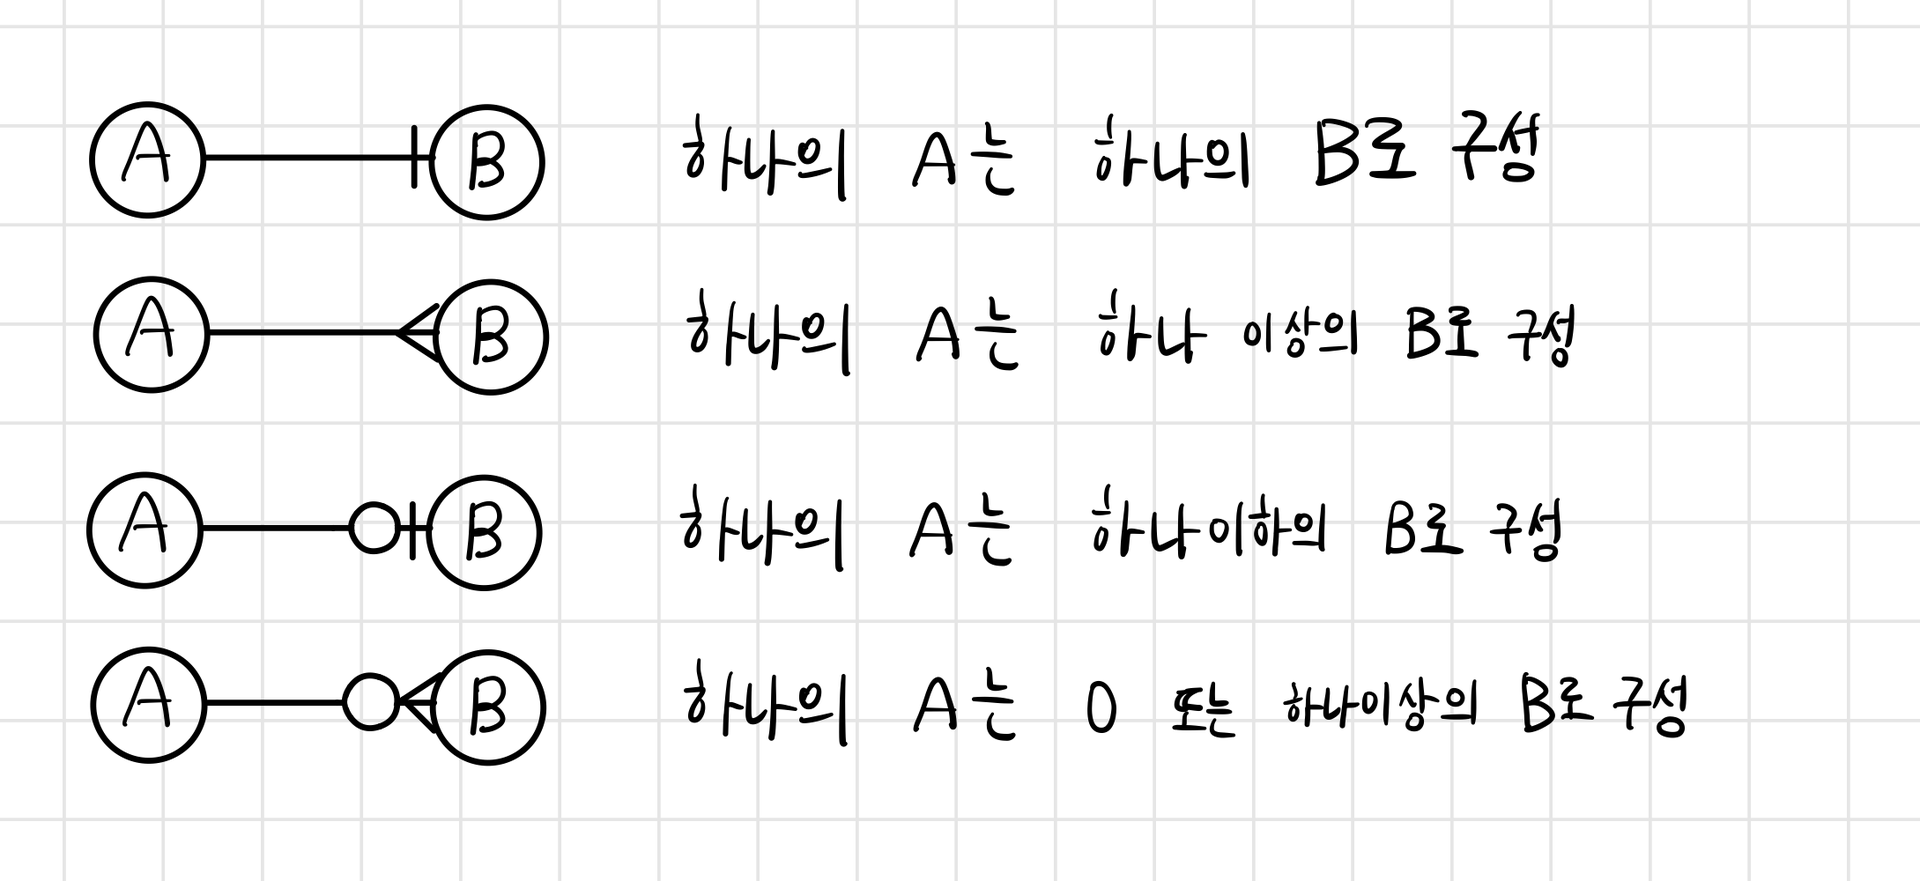 A B 하나의 A는 하나의 B로 구성
A B 하나의 A는 하나 이상의 B로 구성
A B 하나의 A는 하나이하의 B로 구성
A B 하나의 A는 0 또는 하나이상의 B로 구성